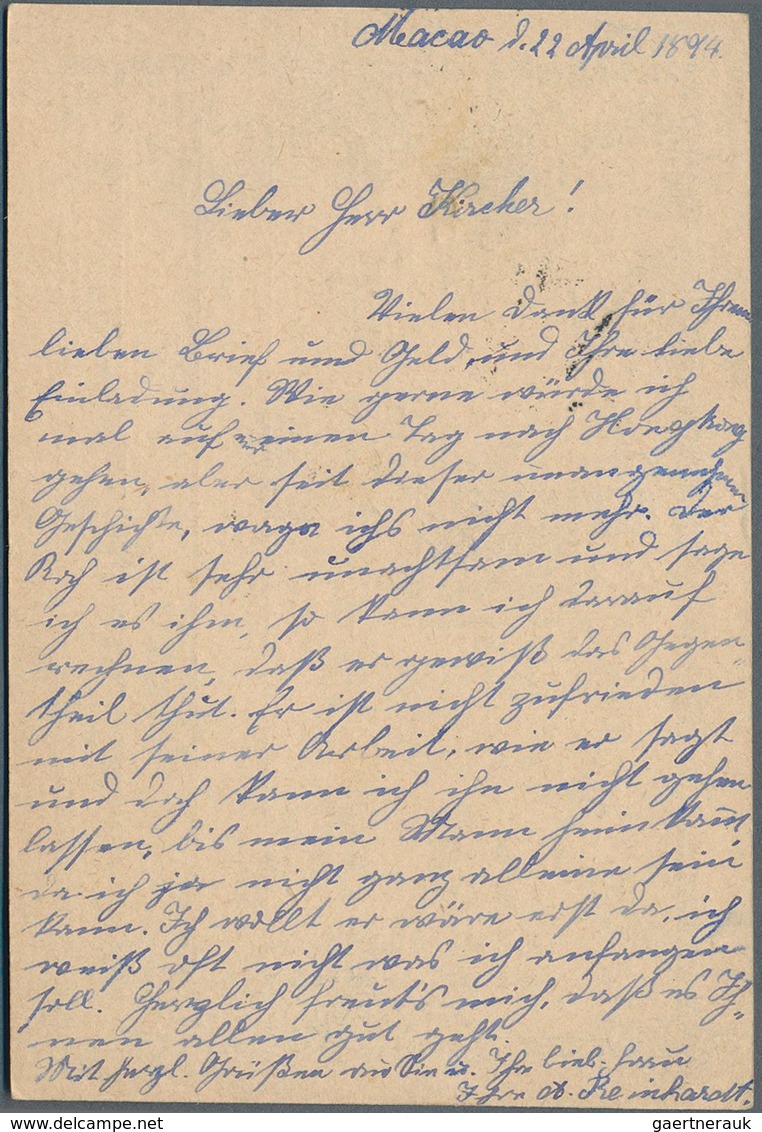 Macao d. 22 April 1894.
Lieber Herr Kircher!
Vielen Dank für Ihren
lieben Brief und Geld, und Ihre liebe
Einladung. Wie gerne würde ich
mal auf einen Tag nach Hongkong
gehen, aber seit dieser unangenehmen
Geschichte, wage ichs nicht mehr. Der
Koch ist sehr unachtsam und sage
ich es ihm, so kann ich darauf
rechnen, daß er gewiß das Gegen-
theil thut. Er ist nicht zufrieden
mit seiner Arbeit, wie er sagt
und doch kann ich ihn nicht gehen
lassen, bis mein Mann heim kommt,
da ich ja nicht ganz alleine sein
kann. Ich wollt er wäre erst da, ich
weiß oft nicht was ich anfangen
soll. Herzlich freut's mich, daß es Ih-
nen allen gut geht.
Mit herzl. Grüßen an Sie u. Ihre lieb. Frau
Ihre A. Reinhardt.
gaertnerauk